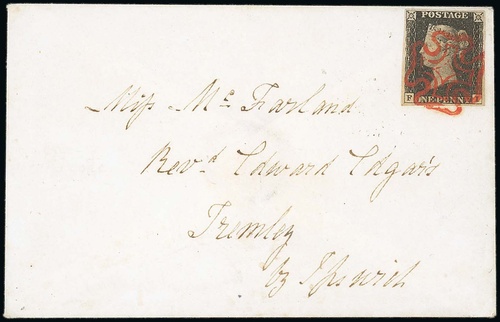 POSTAGE
F F
ONE PENNY
Miss Mc Farland
Revd Edward Edgar's
Tremley
by Ipswich